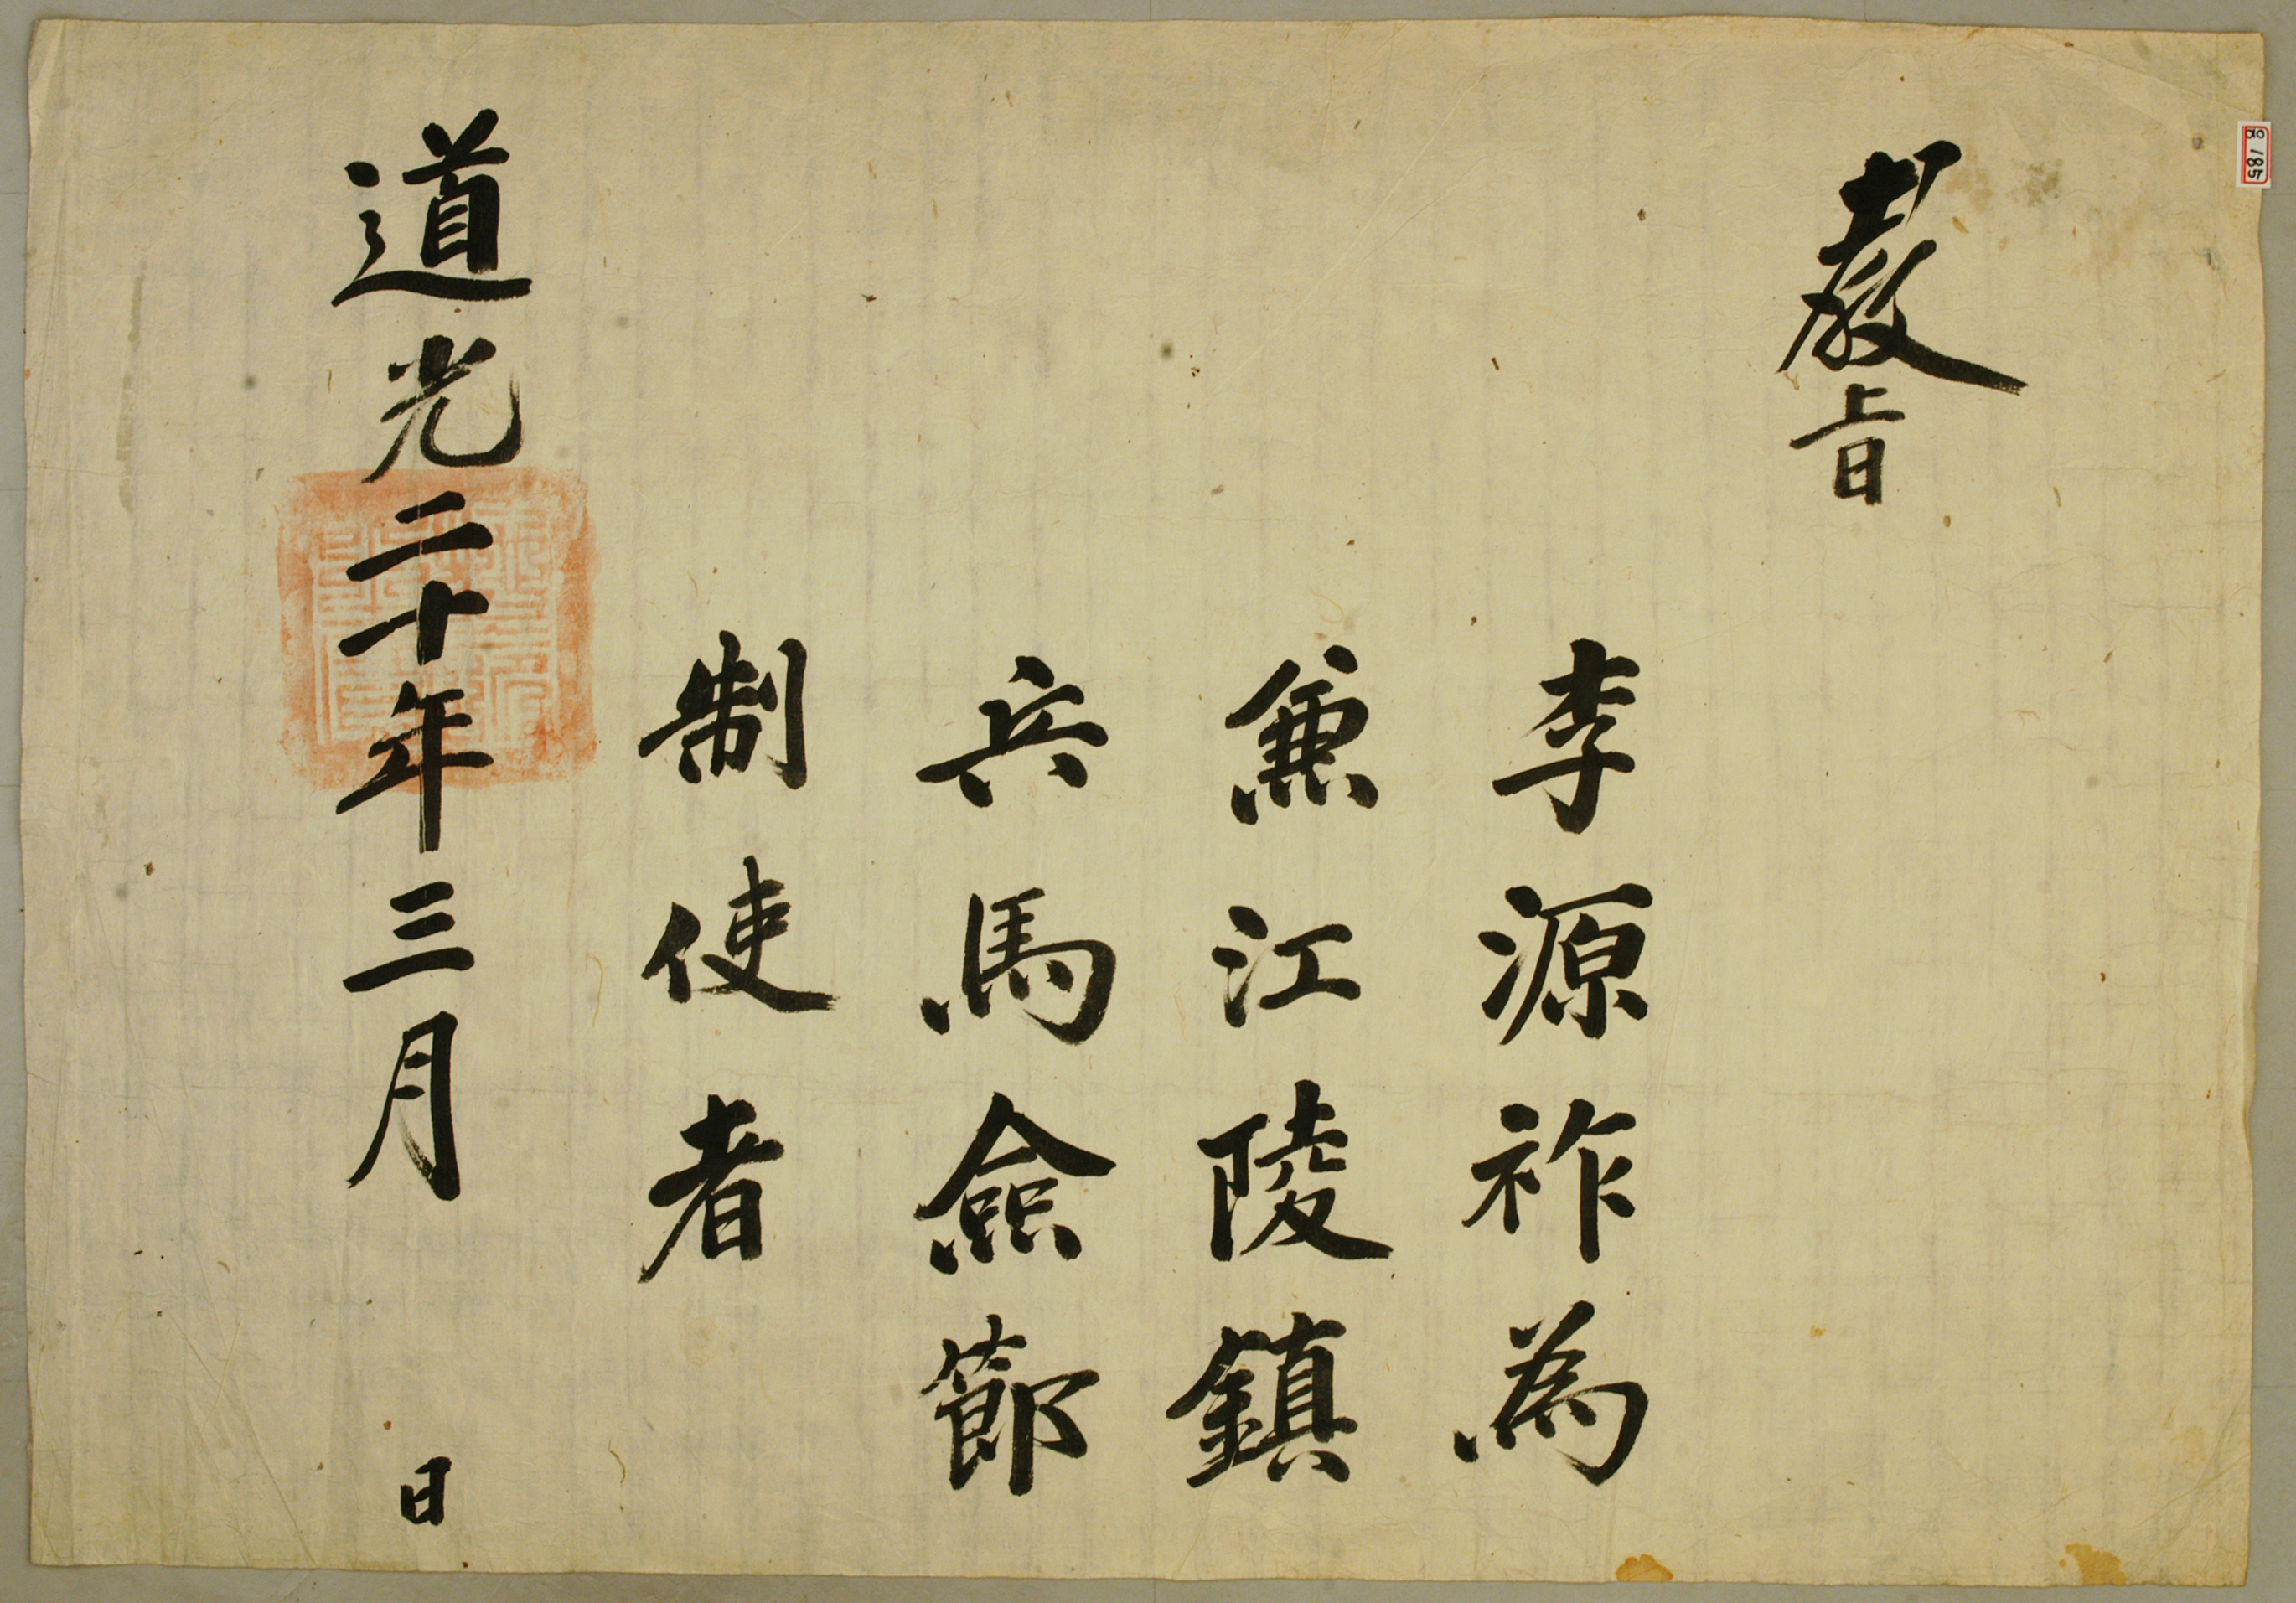 教旨
李源祚為
兼江陵鎮
兵馬僉節
制使者
道光二十年三月 日
185